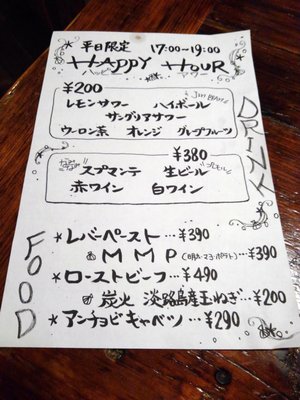 平日限定 17:00~19:00
HAPPY HOUR
ハッピー アワー
¥200
レモンサワー ハイボール
サングリアサワー
ウーロン茶 オレンジ グレープフルーツ
¥380
スプマンテ 生ビール
赤ワイン 白ワイン
DRINK
FOOD
*レバーペースト…¥390
MMP(明太・マヨ・ポテト)…¥390
*ローストビーフ…¥490
炭火 淡路島産玉ねぎ…¥200
*アンチョビキャベツ…¥290